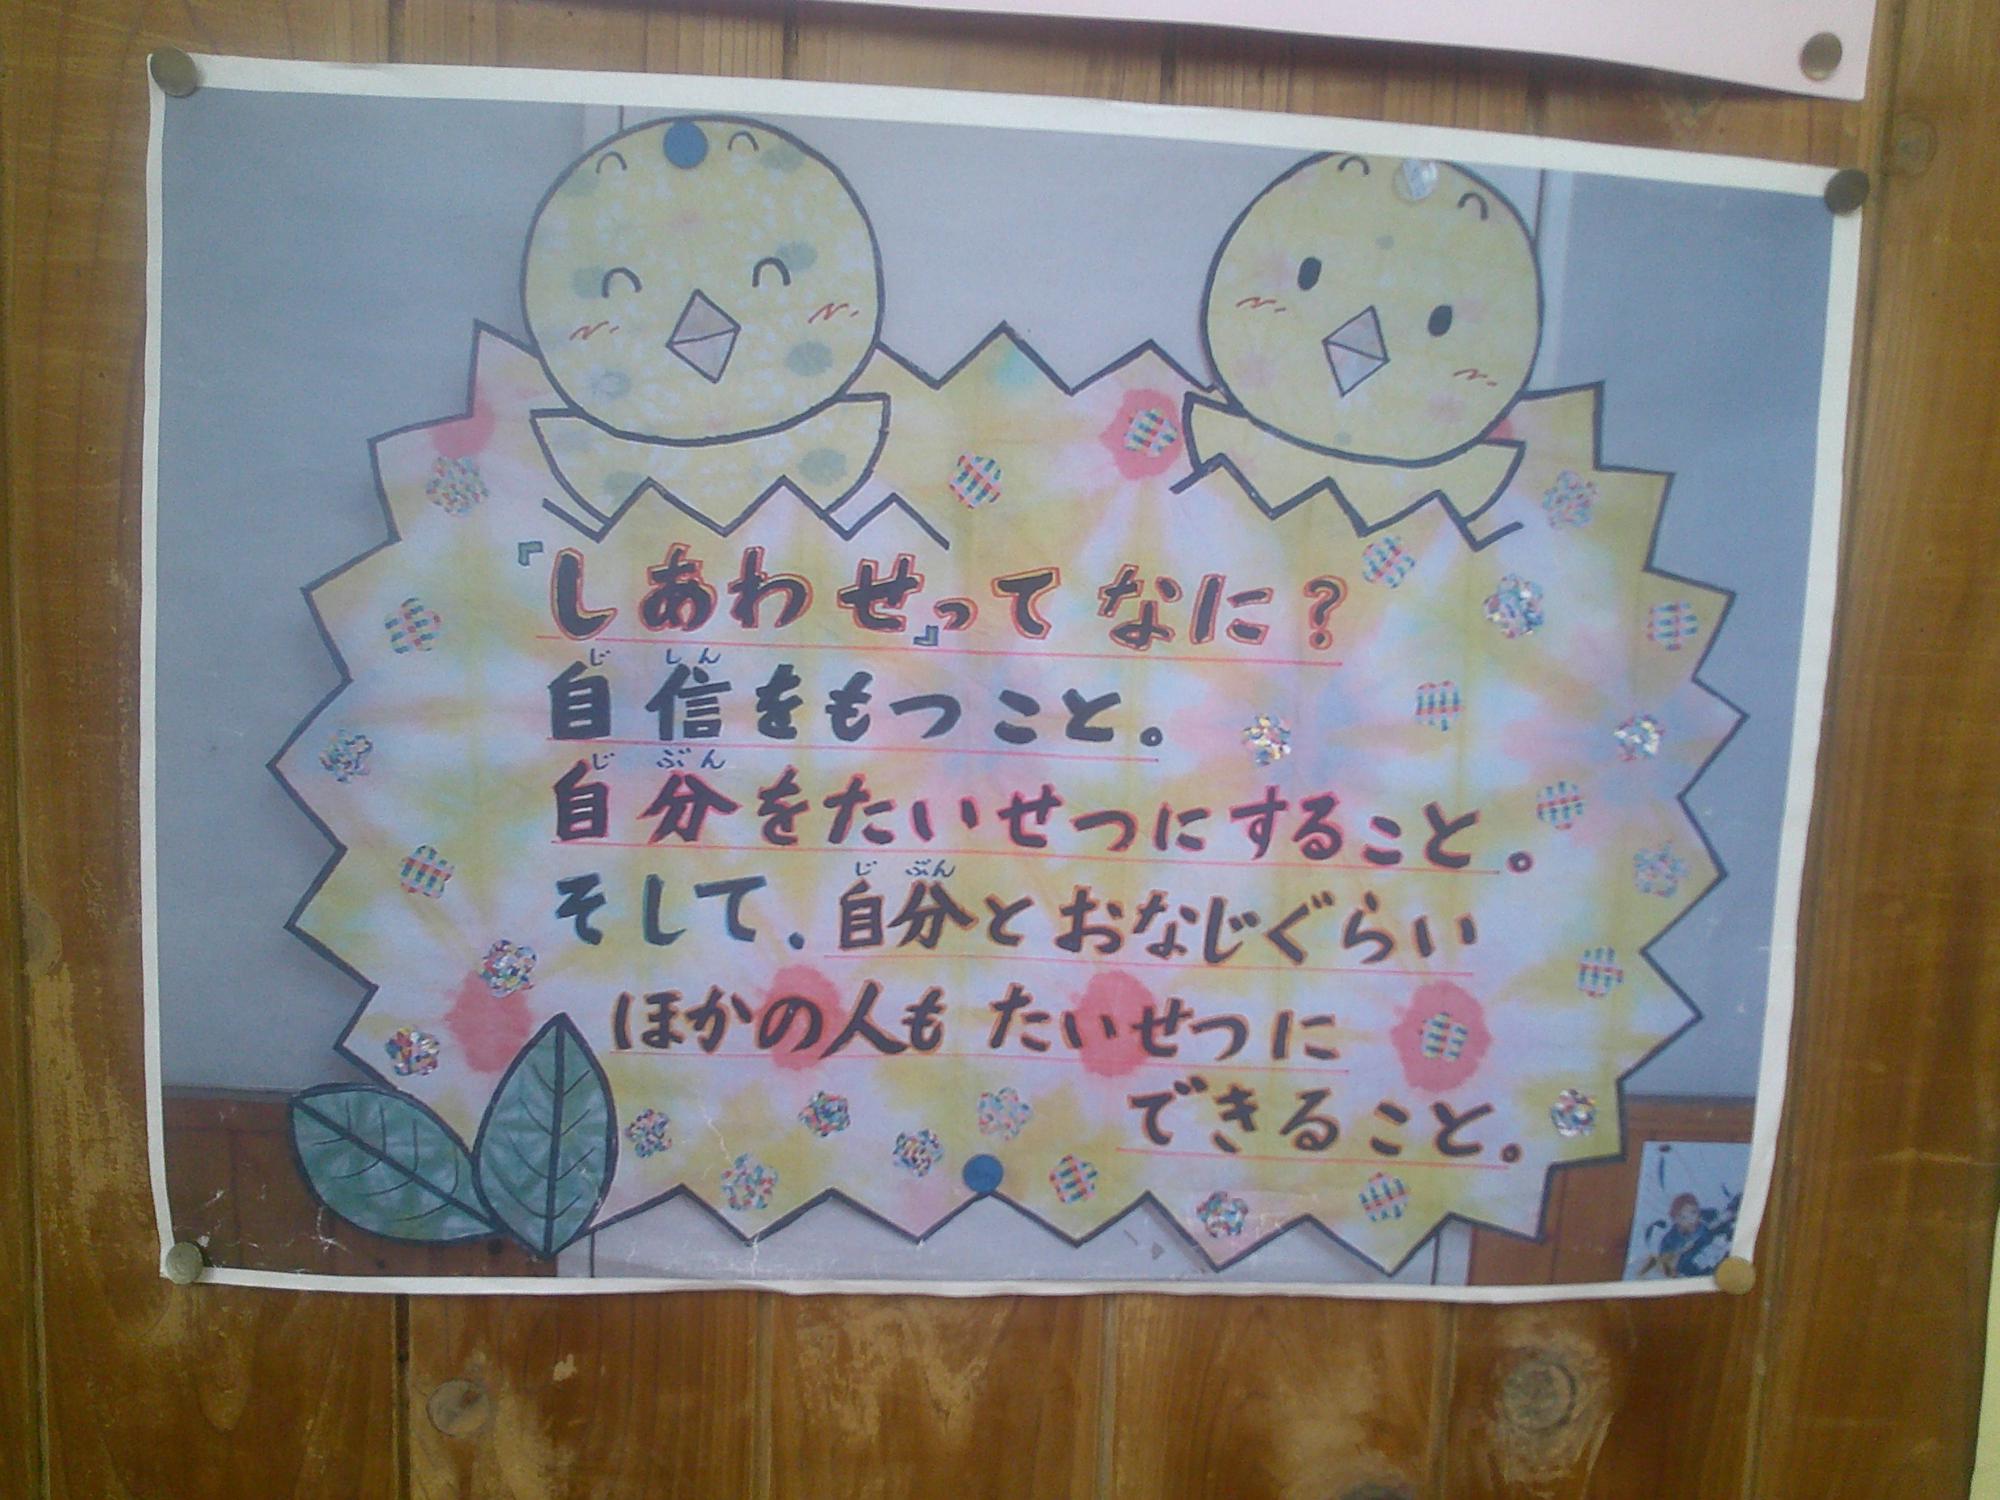 『しあわせ』ってなに？
自信をもつこと。
自分をたいせつにすること。
そして、自分とおなじぐらい
ほかの人もたいせつに
できること。